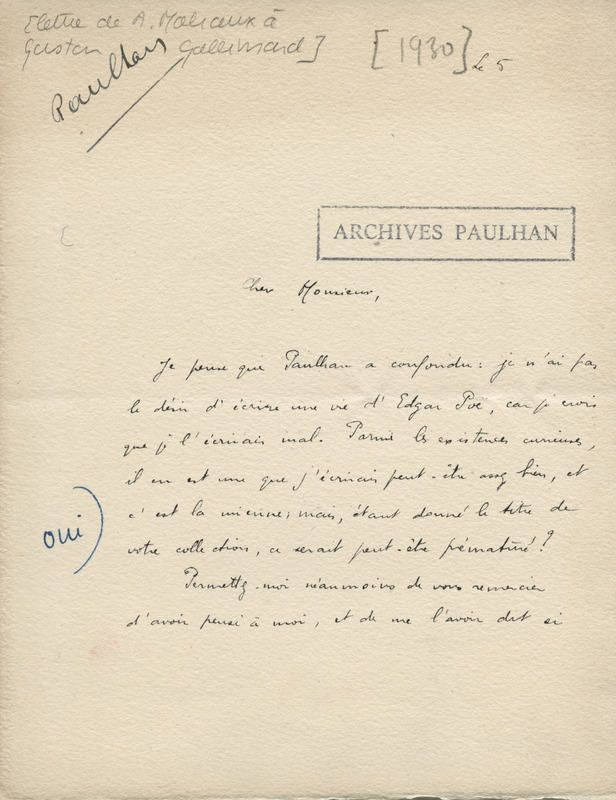 [lettre de A. Malraux à
Gaston Gallimard]
[1930]
Le 5
Paulhan
ARCHIVES PAULHAN
Cher Monsieur,
Je pense que Paulhan a confondu : je n'ai pas
le désir d'écrire une vie d'Edgar Poë, car je crois
que je l'écrirais mal. Parmi les existences curieuses,
il en est une que j'écrirais peut-être assez bien, et
c'est la mienne ; mais, étant donné le titre de
oui)
votre collection, ce serait peut-être prématuré ?
Permettez-moi néanmoins de vous remercier
d'avoir pensé à moi, et de me l'avoir dit si